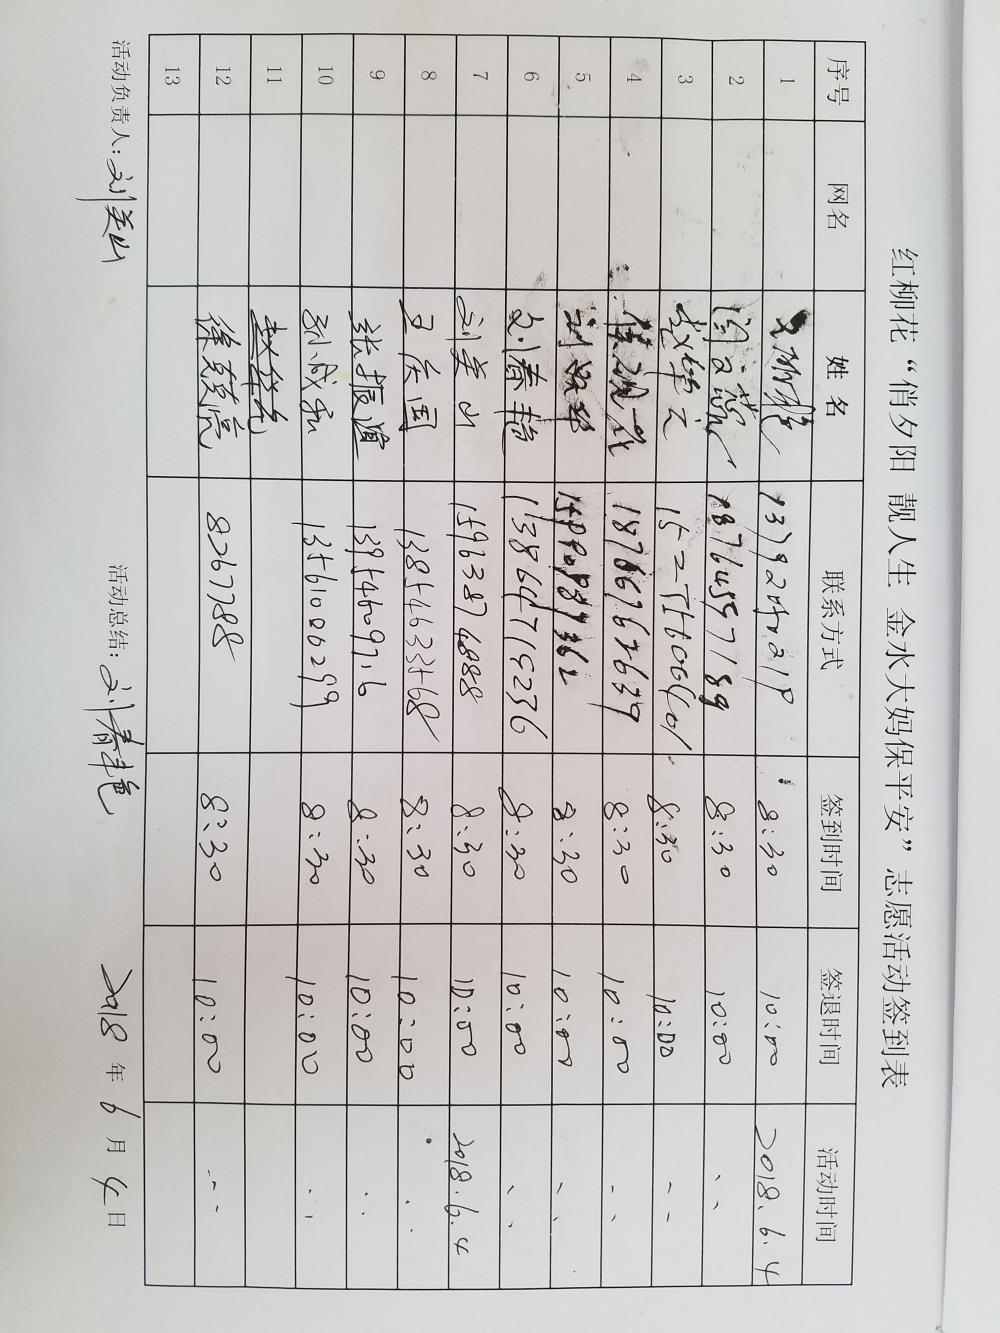 红柳花“俏夕阳 靓人生 金水大妈保平安”志愿活动签到表
序号 网名 姓名 联系方式 签到时间 签退时间 活动时间
1 8:30 10:00 2018.6.4
2 18764597189 8:30 10:00 〃
3 8:30 10:00 〃
4 18766767639 8:30 10:00 〃
5 8:30 10:00 〃
6 刘春艳 13864715236 8:30 10:00 〃
7 刘美山 15963874888 8:30 10:00 2018.6.4
8 13854633568 8:30 10:00 〃
9 张振道 8:30 10:00 〃
10 孙成和 13561006299 8:30 10:00 〃
11
12 8267788 8:30 10:00 〃
13
活动负责人：刘美山 活动总结：刘春艳 2018 年 6 月 4 日